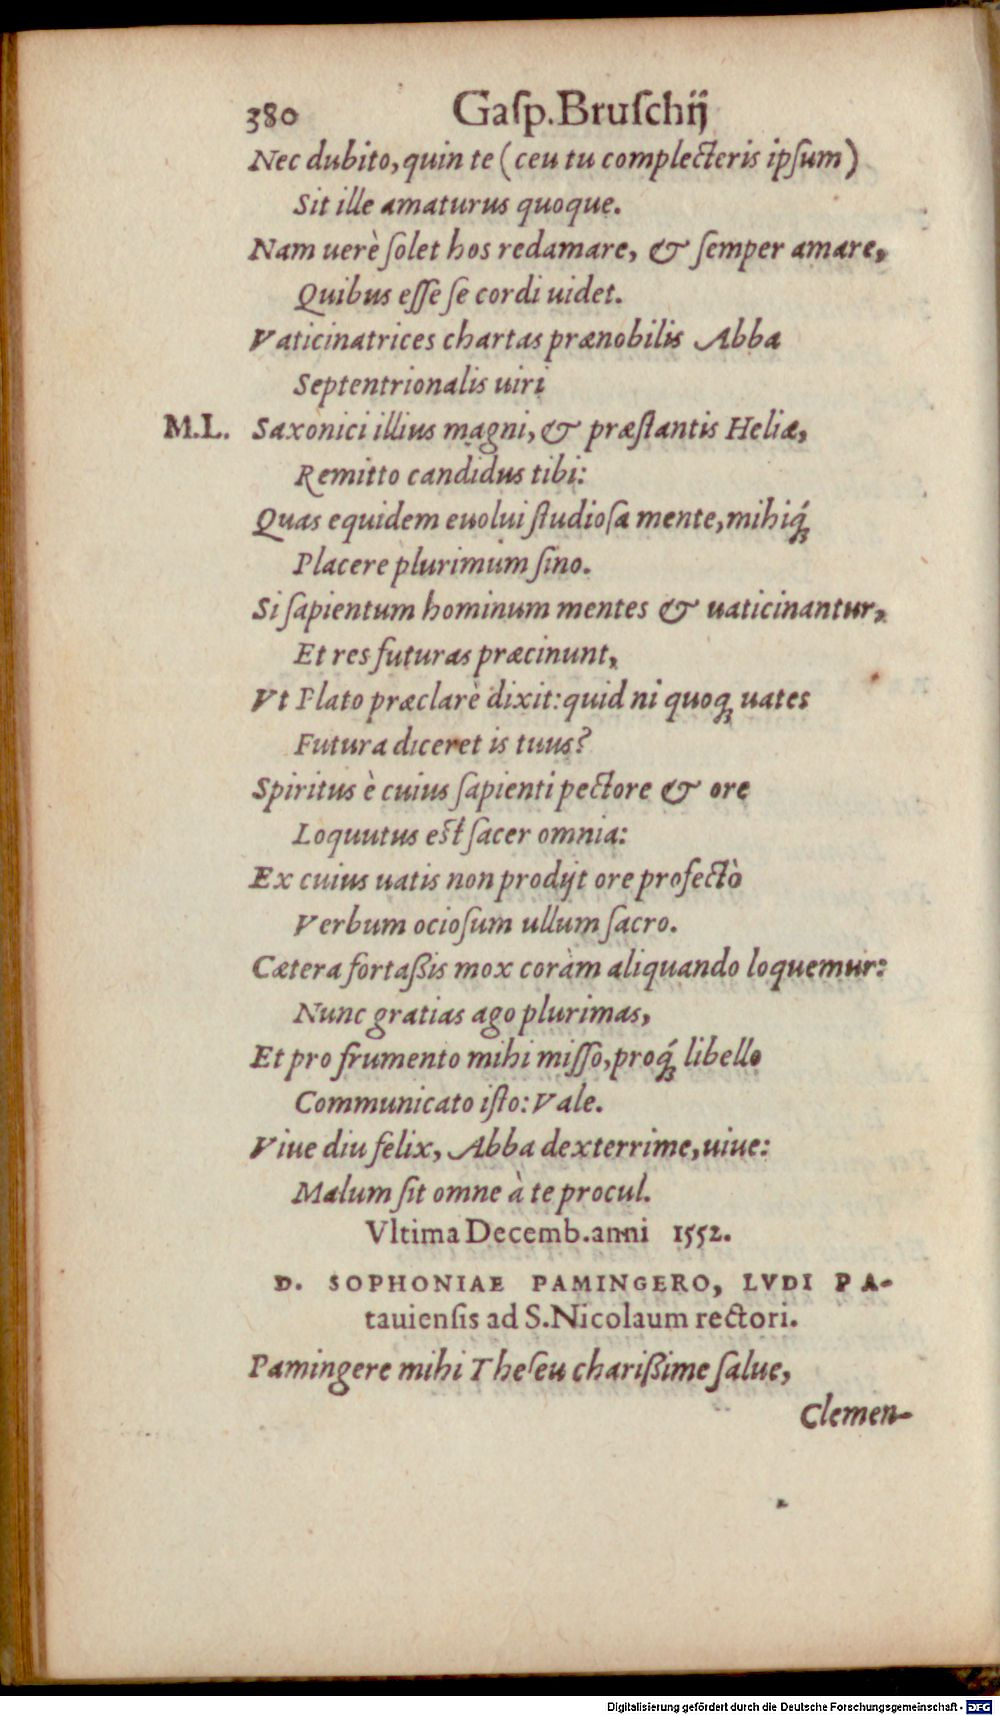 380 Gaſp. Bruſchij
Nec dubito, quin te (ceu tu complecteris ipſum)
Sit ille amaturus quoque.
Nam uerè ſolet hos redamare, & ſemper amare,
Quibus eſſe ſe cordi uidet.
Vaticinatrices chartas prænobilis Abba
Septentrionalis uiri
M.L. Saxonici illius magni, & præſtantis Heliæ,
Remitto candidus tibi:
Quas equidem euolui ſtudioſa mente, mihiq́;
Placere plurimùm ſino.
Si ſapientum hominum mentes & uaticinantur,
Et res futuras præcinunt,
Vt Plato præclarè dixit: quid ni quoq; uates
Futura diceret is tuus?
Spiritus è cuius ſapienti pectore & ore
Loquutus eſt ſacer omnia:
Ex cuius uatis non prodijt ore profectò
Verbum ocioſum ullum ſacro.
Cætera fortaßis mox coràm aliquando loquemur:
Nunc gratias ago plurimas,
Et pro frumento mihi miſſo, proq́; libello
Communicato iſto: Vale.
Viue diu felix, Abba dexterrime, uiue:
Malum ſit omne à te procul.
Vltima Decemb. anni 1552.
D. SOPHONIAE PAMINGERO, LVDI PA-
tauienſis ad S. Nicolaum rectori.
Pamingere mihi Theſeu charißime ſalue,
Clemen-
Digitalisierung gefördert durch die Deutsche Forschungsgemeinschaft - DFG